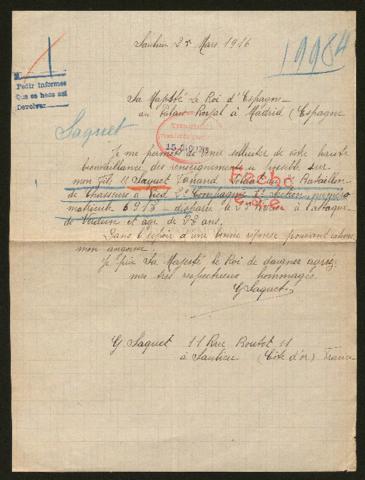 Saulieu 25 Mars 1916
19984
Pedir informes
Que se hace así
Devolver
Sa Majesté Le Roi d'Espagne
au Palais Royal à Madrid (Espagne
Saquet
Je me permets de venir solliciter de votre haute
bienveillance des renseignements au sujet sur
mon fils M. Saquet Fernand Soldat au Bataillon
de Chasseurs à Pied 2e Compagnie
matricule disparu le à l'attaque
de Verdun et age de ans.
Dans l'espoir d'une bonne réponse pouvant calmer
mon angoisse
Je prie Sa Majesté le Roi de daigner agréer
mes très respectueux hommages
G Saquet
G. Saquet 11 Rue 11
à Saulieu (Côte d'or) France